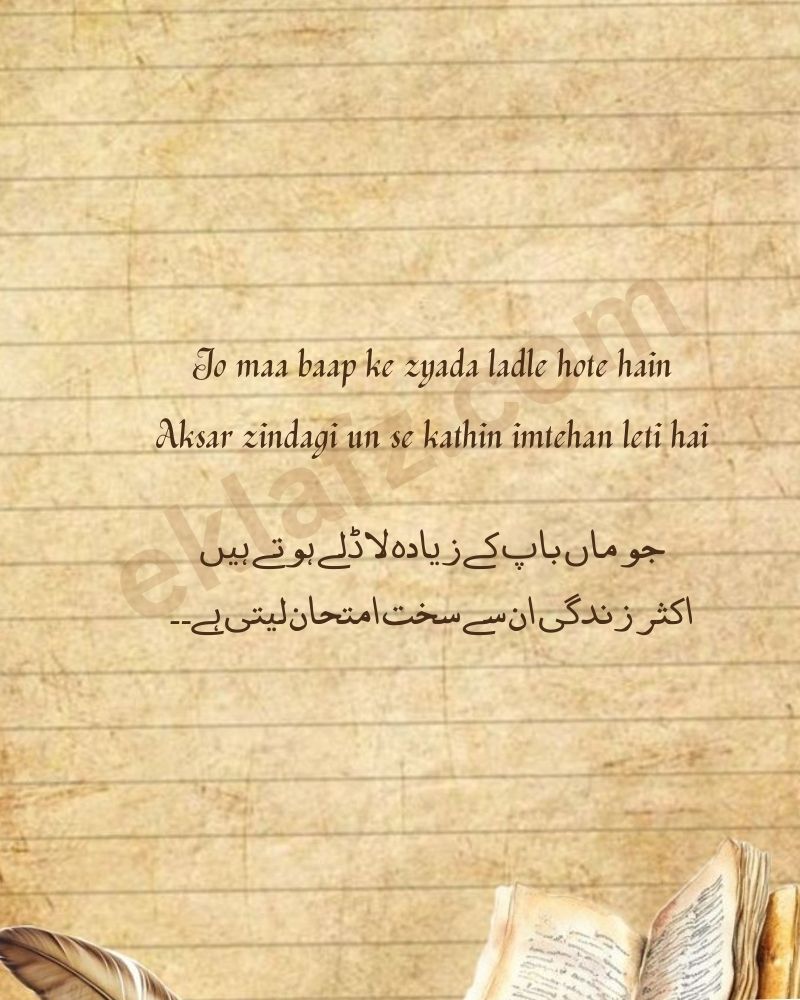 Jo maa baap ke zyada ladle hote hain
Aksar zindagi un se kathin imtehan leti hai
جو ماں باپ کے زیادہ لاڈلے ہوتے ہیں
اکثر زندگی ان سے سخت امتحان لیتی ہے--
eklafz.com